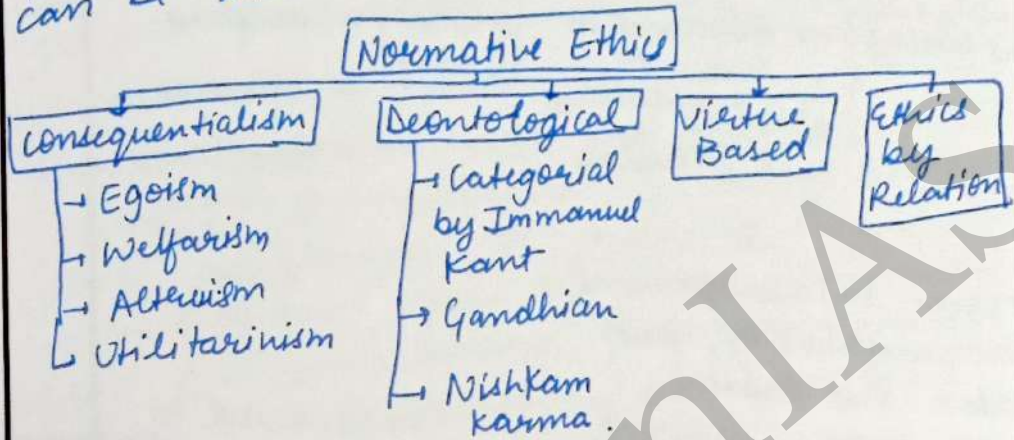 can
Normative Ethics
Consequentialism
→ Egoism
→ Welfarism
→ Alteruism
Utilitarinism
Deontological
→ Categorial
by Immanuel
Kant
→ Gandhian
→ Nishkam
Karma.
Virtue
Based
Ethics
by
Relation